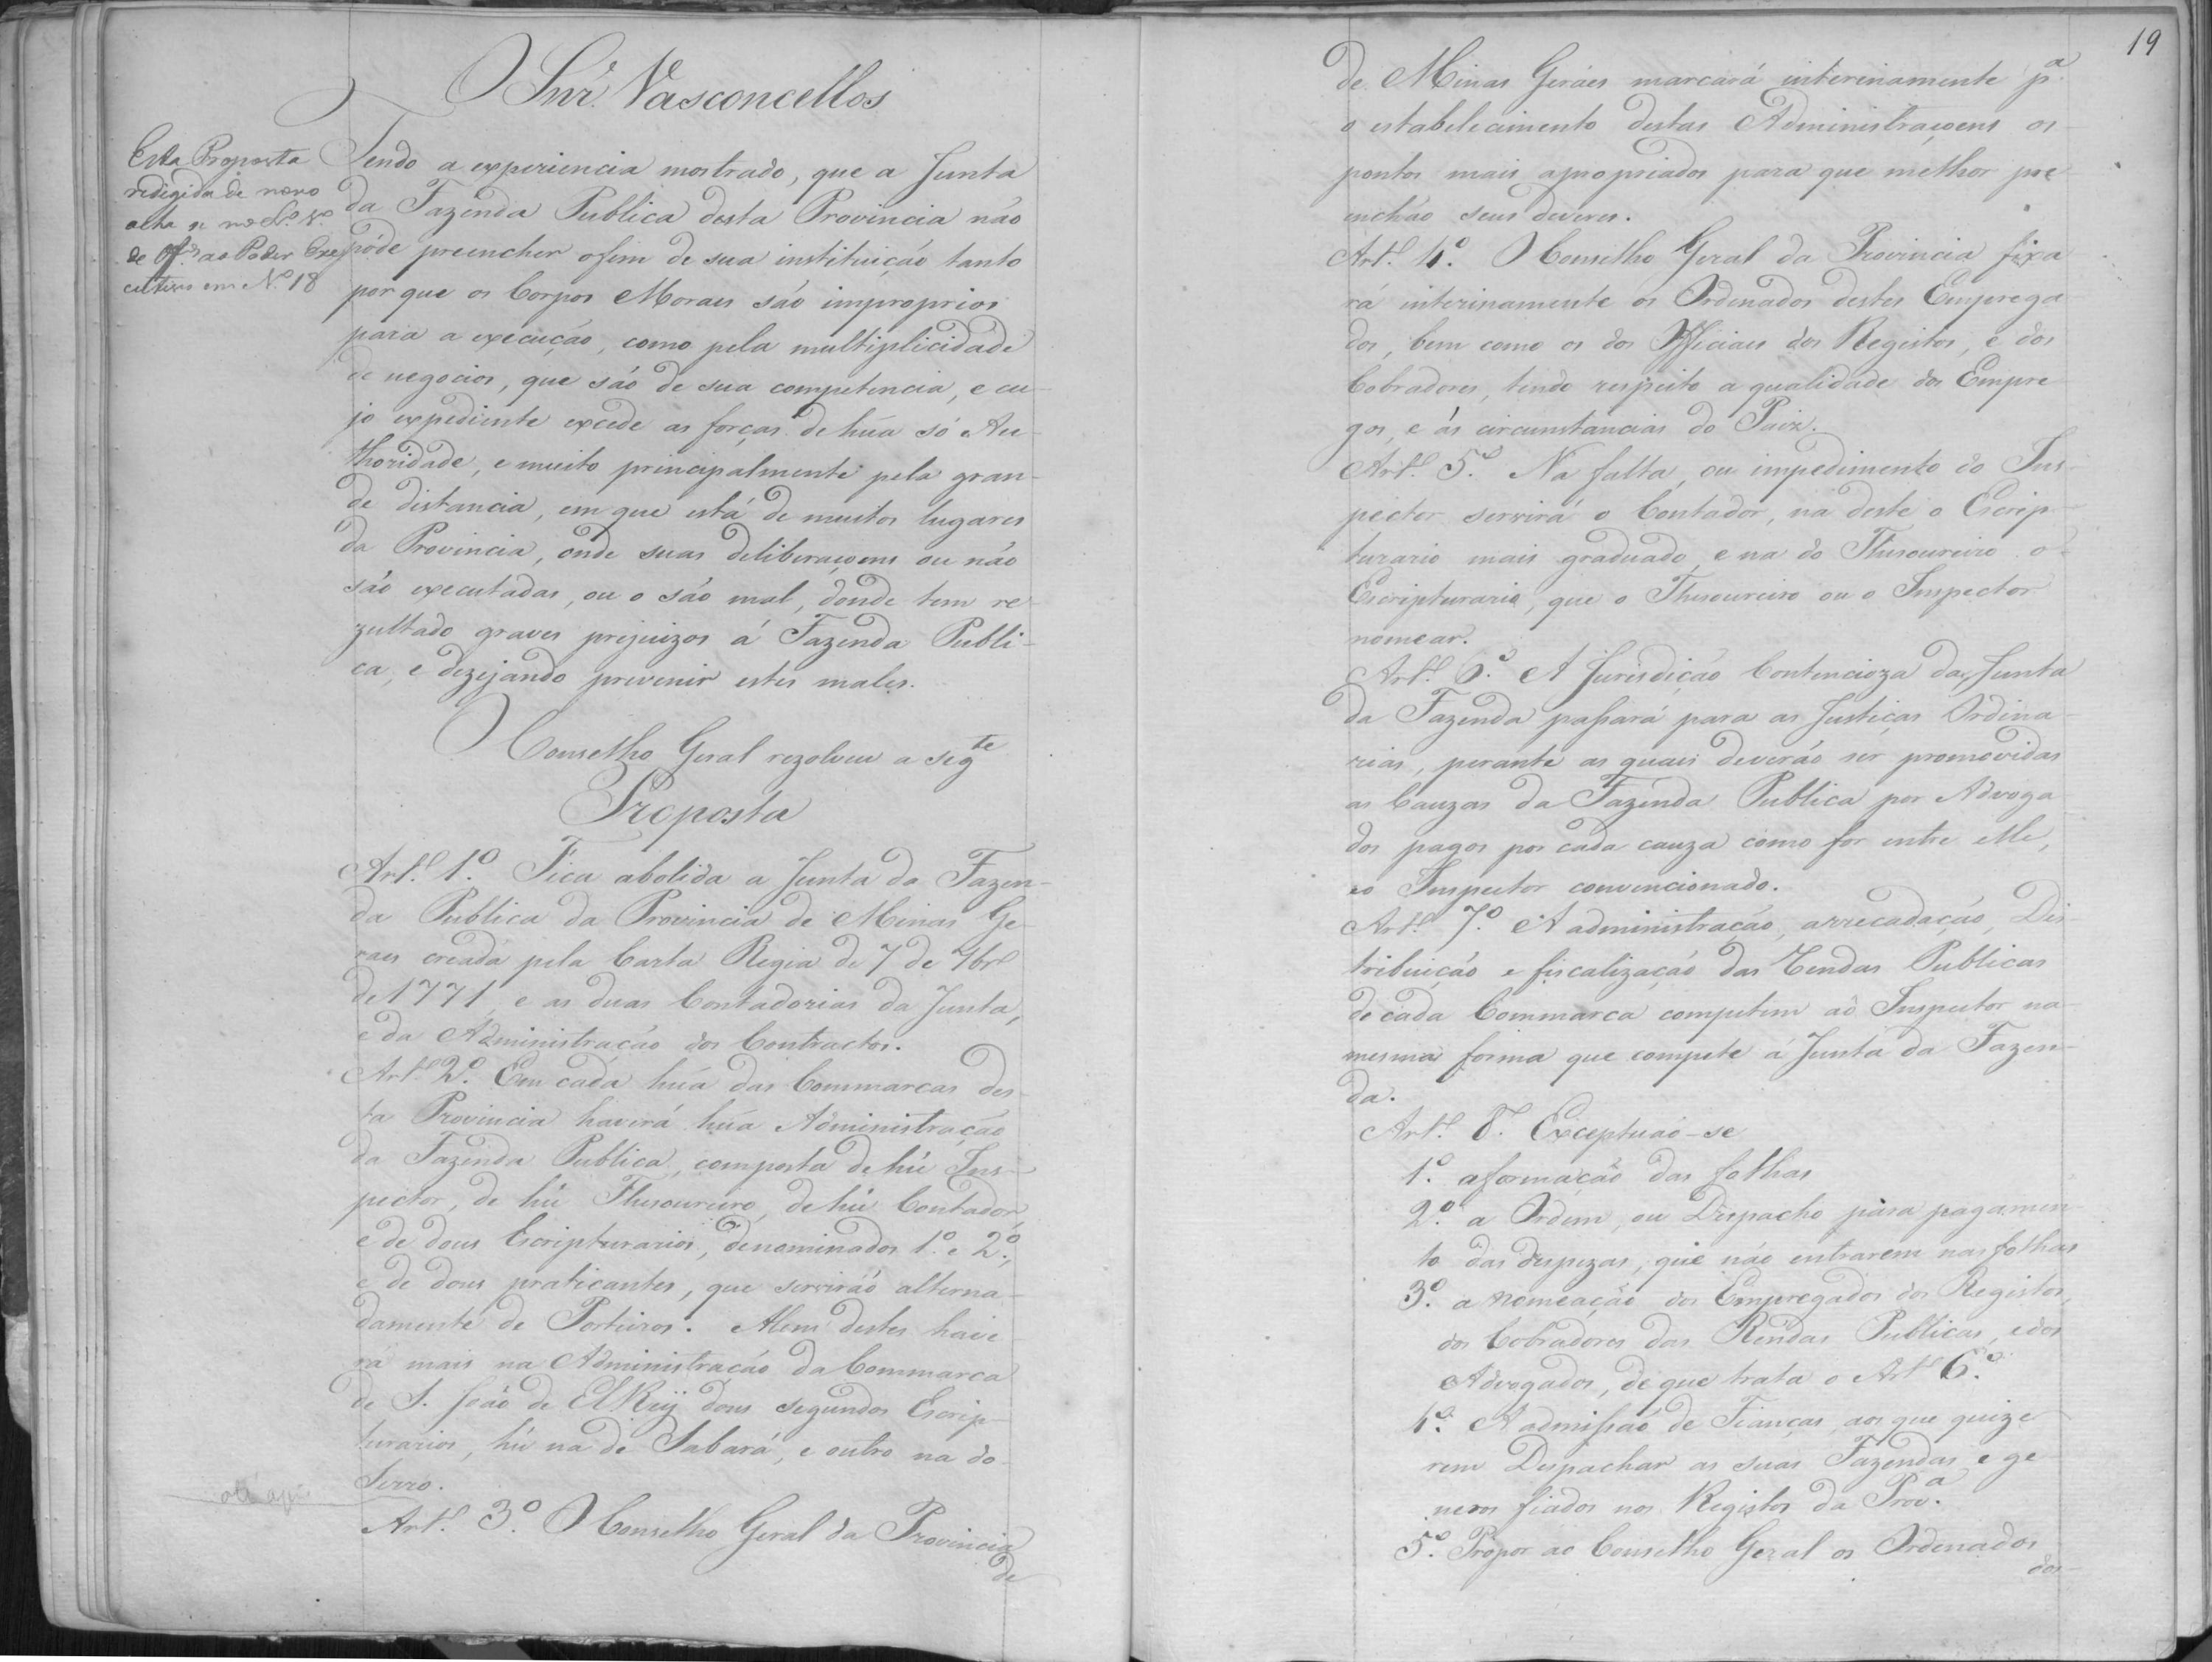 O Snr. Vasconcellos
Esta Proposta
redigida de novo
acha se no L.º 8.º
de Off.os ao Poder Exe
cutivo em N.º 18
Tendo a experiencia mostrado, que a Junta
da Fazenda Publica desta Provincia não
póde preencher o fim de sua instituição tanto
por que os Corpos Moraes são improprios
para a execução, como pela multiplicidade
de negocios, que são de sua competencia, e cu-
jo expediente excede as forças de hũa só Au-
thoridade, e muito principalmente pela gran-
de distancia, em que está de muitos lugares
da Provincia, onde suas deliberaçoens ou não
são executadas, ou o são mal, donde tem re-
zultado graves prejuizos á Fazenda Publi-
ca, e dezejando prevenir estes males.
O Conselho Geral rezolveu a seg.te
Proposta
Art.º 1.º Fica abolida a Junta da Fazen-
da Publica da Provincia de Minas Ge-
raes creada pela Carta Regia de 7 de 7br.º
de 1771, e as duas Contadorias da Junta,
e da Administração dos Contractos.
Art.º 2.º Em cada hũa das Commarcas des-
ta Provincia haverá hũa Administração
da Fazenda Publica, composta de hũ Ins-
pector, de hũ Thesoureiro, de hũ Contador,
e de dous Escripturarios, denominados 1.º e 2.º,
e de dous praticantes, que servirão alterna-
damente de Porteiros. Alem destes have-
rá mais na Administração da Commarca
de S. João de ElRey dous segundos Escrip-
turarios, hũ na de Sabará, e outro na do
Serro.
Art.º 3.º O Conselho Geral da Provincia
de
19
de Minas Geráes marcará interinamente p.a
o estabelecimento destas Administraçoens os
pontos mais apropriados para que melhor pre
enchão seus deveres.
Art.º 4.º O Conselho Geral da Provincia fixa
rá interinamente os Ordenados destes Emprega
dos, bem como os dos Officiaes dos Registos, e dos
Cobradores, tendo respeito a qualidade dos Empre
gos, e ás circunstancias do Paiz.
Art.º 5.º Na falta, ou impedimento do Ins-
pector servirá o Contador, na deste o Escrip-
turario mais graduado, e na do Thesoureiro o
Escripturario, que o Thesoureiro ou o Inspector
nomear.
Art.º 6.º A Jurisdição Contencioza da Junta
da Fazenda passará para as Justiças Ordina-
rias, perante as quais deverão ser promovidas
as Cauzas da Fazenda Publica por Advoga-
dos pagos por cada cauza como for entre elle,
eo Inspector convencionado.
Art.º 7.º A administração, arrecadação, Dis-
tribuição e fiscalização das Rendas Publicas
de cada Commarca competem ao Inspector na
mesma forma que compete á Junta da Fazen-
da.
Art.º 8.º Exceptuão-se
1.º a formação das folhas
2.º a Ordem, ou Despacho para pagamen
to das despezas, que não entrarem nas folhas
3.º a nomeação dos Empregados dos Registos,
dos Cobradores das Rendas Publicas, e dos
Advogados, de que trata o Art.º 6.º
4.º A admissão de Fianças aos que quize
rem Despachar as suas Fazendas, e ge
neros fiados nos Registos da Prov.a
5.º Propor ao Conselho Geral os Ordenados
dos